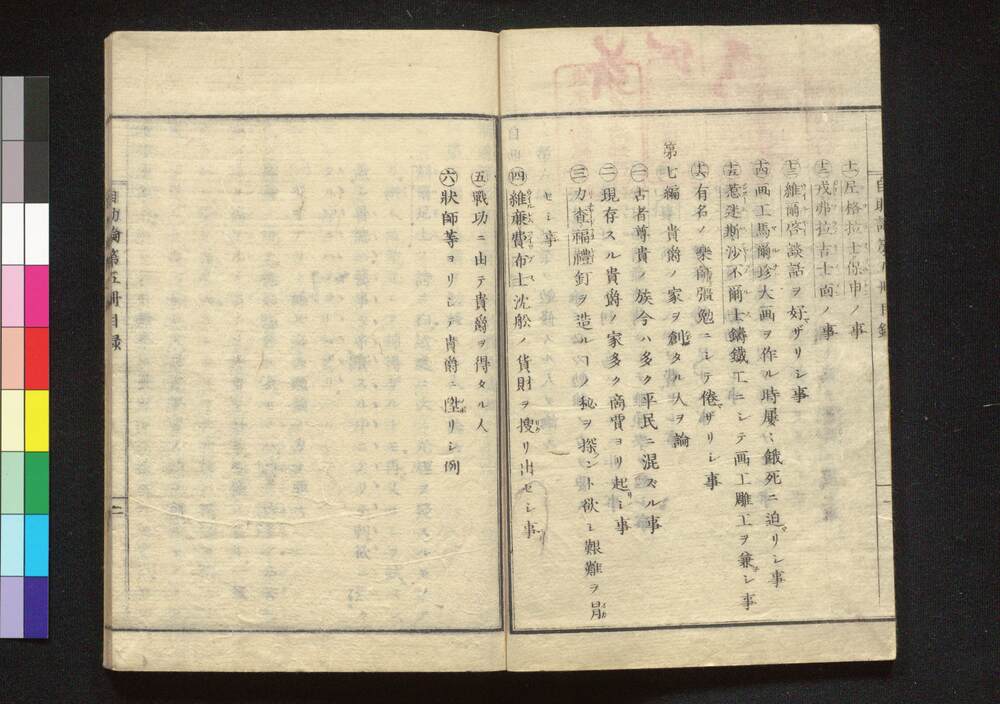 ㊉一 尼格拉士保申ノ事
㊉二 戎弗拉古士曼ノ事
㊉三 維爾啓談話ヲ好ザリシ事
㊉四 画工馬爾珍大画ヲ作ル時屢〻餓死ニ迫リシ事
㊉五 惹迷斯沙不爾士鑄鐵工ニシテ画工雕工ヲ兼シ事
㊉六 有名ノ樂師強勉ニシテ倦ザリシ事
第七編 貴爵ノ家ヲ創タル人ヲ論
㊀古者尊貴ノ族今ハ多ク平民ニ混ズル事
㊁現存スル貴爵ノ家多ク商賈ヨリ起シ事
㊂力査福禮釘ヲ造ルヿノ秘ヲ探ント欲シ艱難ヲ冐
セシ事
㊃維廉費布士沈舩ノ貨財ヲ搜リ出セシ事
㊄戰功ニ由テ貴爵ヲ得タル人
㊅狀師等ヨリシテ貴爵ニ陞リシ例
自助論第五冊目録
二